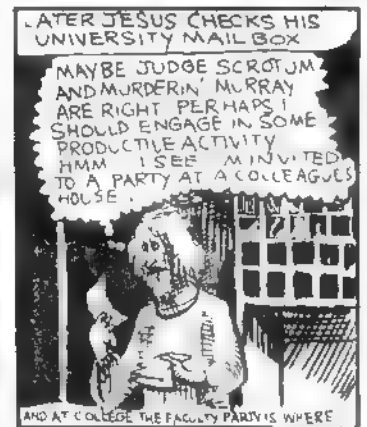 LATER JESUS CHECKS HIS
UNIVERSITY MAIL BOX
MAYBE JUDGE SCROTUM
AND MURDERIN' MURRAY
ARE RIGHT PERHAPS I
SHOULD ENGAGE IN SOME
PRODUCTIVE ACTIVITY
HMM I SEE I'M INVITED
TO A PARTY AT A COLLEAGUES
HOUSE.
AND AT COLLEGE THE FACULTY PARTY IS WHERE